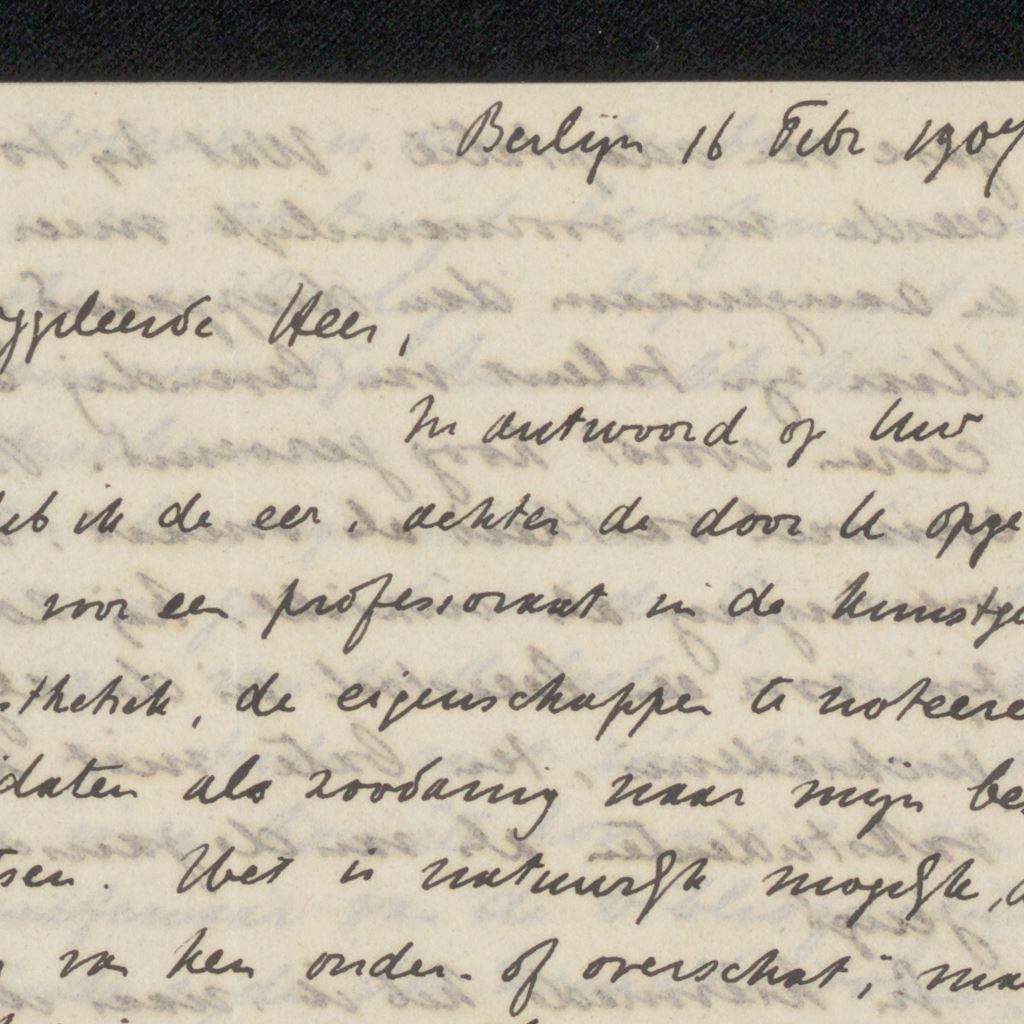 Berlijn 16 Febr 1907
ggeleerde Heer,
In antwoord op Uw
heb ik de eer, achter de door U opge
voor een professoraat in de kunstge
sthetik, de eigenschappen te noteere
daten als zoodanig naar mijn be
tsen. Het is natuurlijk mogelijk, d
van hen onder- of overschat; maa